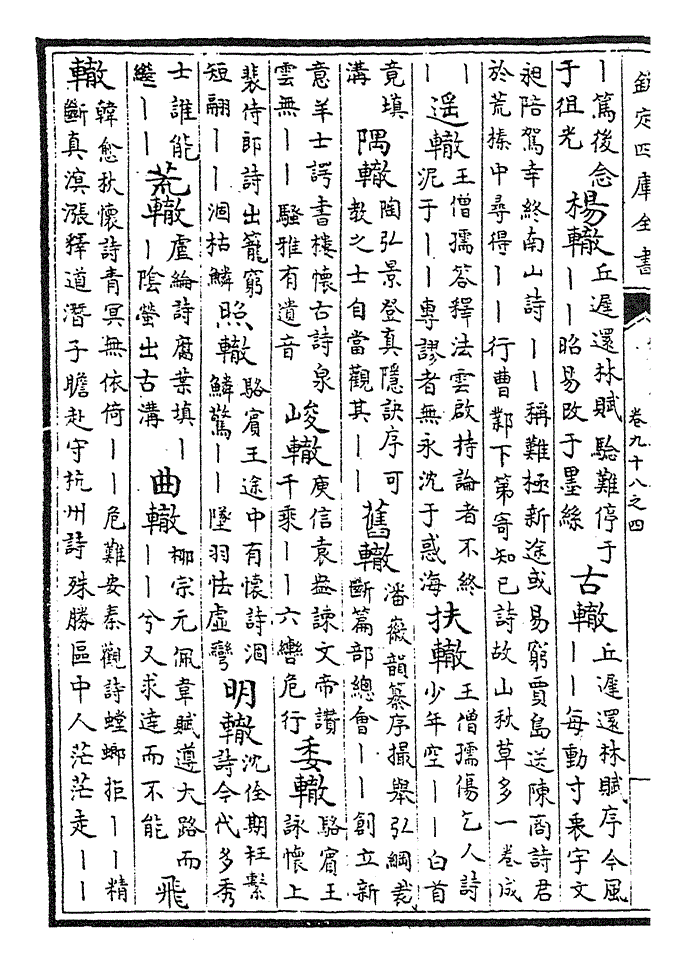 欽定四庫全書
卷九十八之四
丨篤後念于徂光 楊轍 丘遲還林賦驗難停于丨丨昭易改于墨絲 古轍 丘遲還林賦序今風丨丨每動寸衷宇文
昶陪駕幸終南山詩丨丨稱難極新途或易窮賈島送陳商詩君於荒榛中尋得丨丨行曹鄴下第寄知已詩故山秋草多一卷成
丨丨 遥轍 王僧孺答釋法雲啟持論者不終泥于丨丨專謬者無永沈于惑海 扶轍 王僧孺傷乞人詩少年空丨丨白首
竟填溝 隅轍 陶弘景登真隱訣序可教之士自當觀其丨丨 舊轍 潘徽韻纂序撮舉弘綱裁斷篇部總會丨丨創立新
意羊士諤書樓懷古詩泉雲無丨丨騷雅有遺音 峻轍 庾信袁盎諫文帝讚千乘丨丨六轡危行 委轍 駱賓王詠懷上
裴侍郎詩出籠窮短翮丨丨涸枯鱗 照轍 駱賓王途中有懷詩涸鱗驚丨丨墜羽怯虛彎 明轍 沈佺期枉繫詩今代多秀
士誰能繼丨丨 荒轍 盧綸詩腐葉填丨丨陰螢出古溝 曲轍 柳宗元佩韋賦遵大路而丨丨兮又求達而不能 飛
轍 韓愈秋懷詩青冥無依倚丨丨危難安秦觀詩螳螂拒丨丨精斷真漲釋道潛子瞻赴守杭州詩殊勝區中人茫茫走丨丨